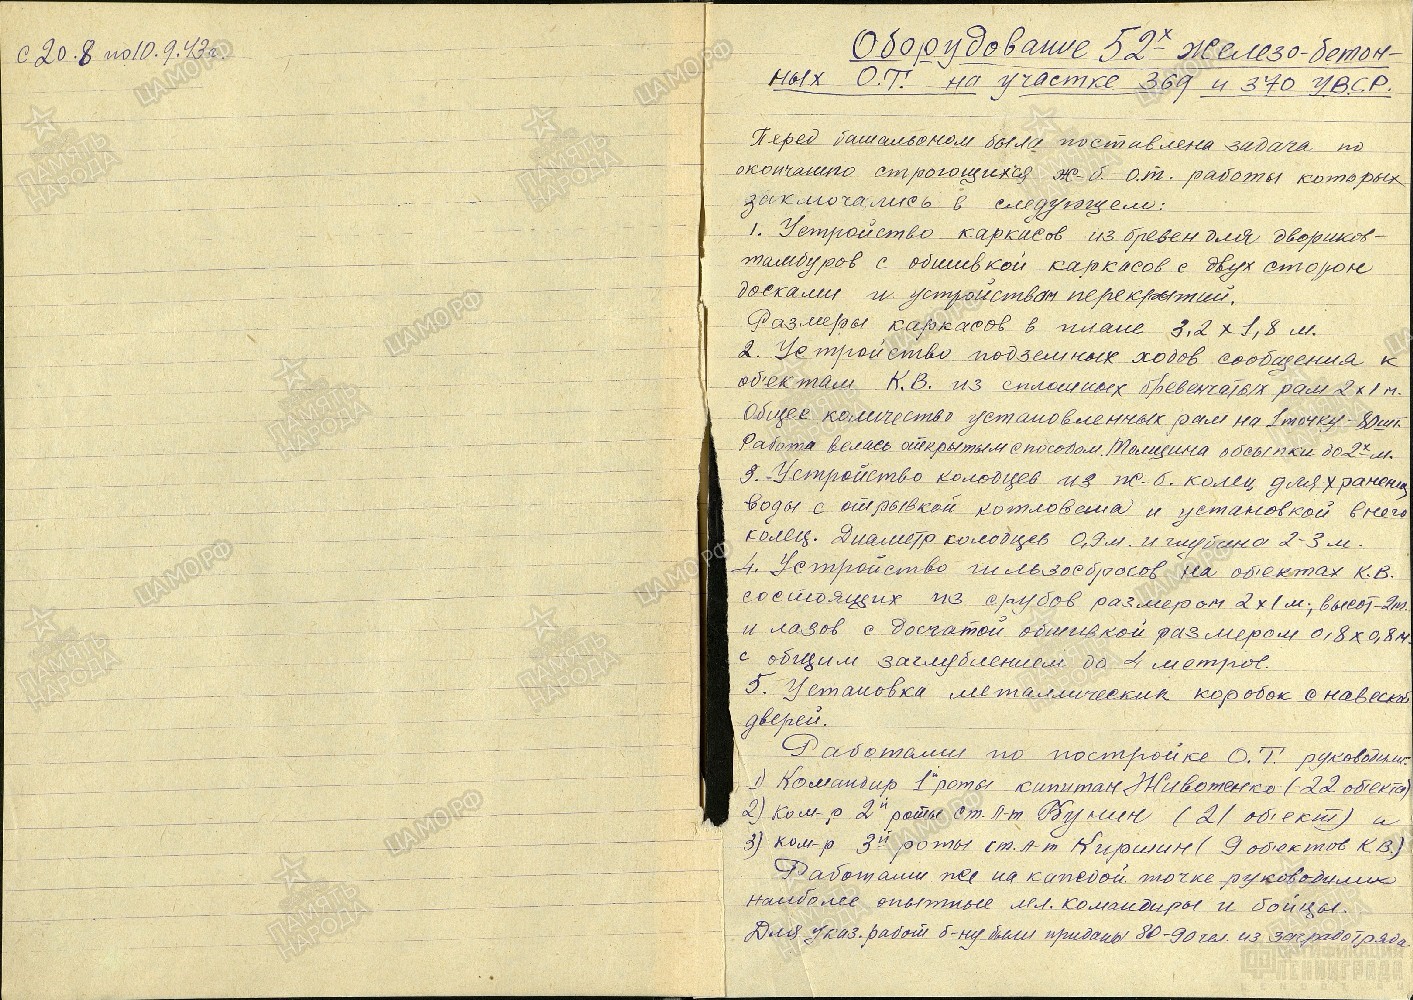 с 20.8 по 10.9.43 г.
Оборудование 52х железо-бетон-
ных О.Т. на участке 369 и 370 УВСР.
Перед батальоном была поставлена задача по
окончанию строющихся ж-б. о.т. работы которых
заключались в следующем:
1. Устройство каркасов из бревен для двориков-
тамбуров с обшивкой каркасов с двух сторон
досками и устройством перекрытий.
Размеры каркасов в плане 3,2 х 1,8 м.
2. Устройство подземных ходов сообщения к
объектам К.В. из сплошных бревенчатых рам 2х1 м.
Общее количество установленных рам на 1 точку - 80 шт.
Работа велась открытым способом. Толщина обсыпки до 2х м.
3. Устройство колодцев из ж.б. колец для хранения
воды с отрывкой котлована и установкой в него
колец. Диаметр колодцев 0,9 м. и глубина 2-3 м.
4. Устройство гильзосбросов на объектах К.В.
состоящих из срубов размером 2х1 м; высот-2 м.
и лазов с досчатой обшивкой размером 0,8х0,8 м.
с общим заглублением до 4 метров.
5. Установка металлических коробок с навеской
дверей.
Работами по постройке О.Т. руководили:
1) Командир 1й роты капитан Животенко (22 объекта)
2) ком-р 2й роты ст. л-т Бунин (21 объект) и
3) ком-р 3й роты ст. л-т Киршин (9 объектов К.В.)
Работами же на каждой точке руководили
наиболее опытные мл. командиры и бойцы.
Для указ. работ б-ну были приданы 80-90 чел. из
ЦАМО.РФ
ПАМЯТЬ НАРОДА
ФОРТИФИКАЦИЯ
ЛЕНИНГРАДА